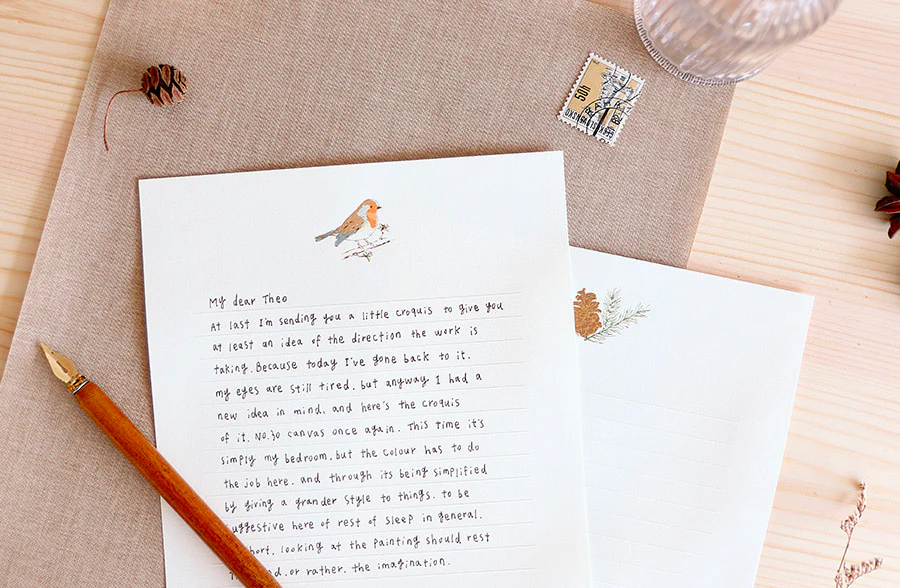 50h
ČESKOSLOVENSKO
My dear Theo
At last I'm sending you a little croquis to give you
at least an idea of the direction the work is
taking. Because today I've gone back to it.
my eyes are still tired. but anyway I had a
new idea in mind, and here's the croquis
of it. No.30 canvas once again. This time it's
simply my bedroom, but the colour has to do
the job here. and through its being simplified
by giving a grander style to things. to be
suggestive here of rest of sleep in general.
looking at the painting should rest
or rather. the imagination.